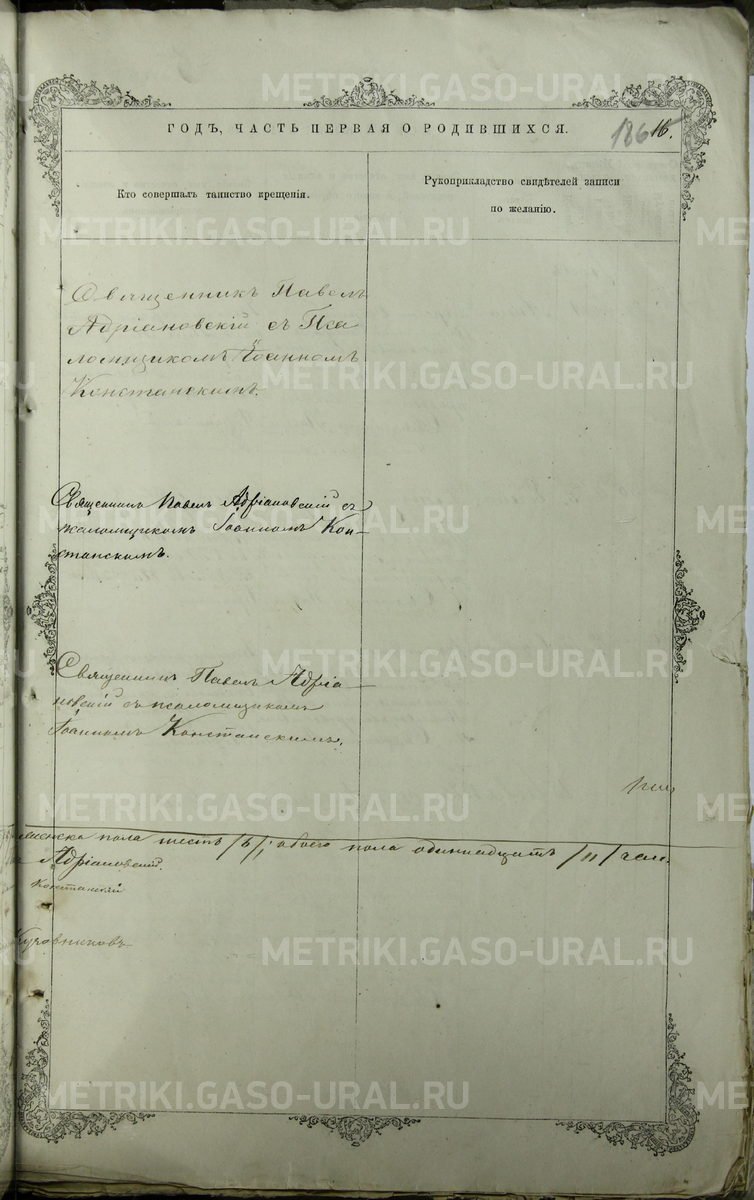 METRIKI.GASO-URAL.RU
ГОДЪ, ЧАСТЬ ПЕРВАЯ О РОДИВШИХСЯ.
186 16.
Кто совершалъ таинство крещенія.
Рукоприкладство свидѣтелей записи
по желанію.
METRIKI.GASO-URAL.RU
Священникъ Павелъ
Адріановскій съ Пса
ломщикомъ Іоанномъ
Констанскимъ.
METRIKI.GASO-URAL.RU
Священникъ Павелъ Адріановскій съ
псаломщикомъ Іоанномъ Кон-
станскимъ.
METRIKI.GASO-URAL.RU
Священникъ Павелъ Адріа-
новскій съ псаломщикомъ
Іоанномъ Констанскимъ.
METRIKI.GASO-URAL.RU
женска пола шесть /6/, обоего пола одиннадцать /11/ чел.
Адріановскій.
Констанскій
METRIKI.GASO-URAL.RU
METRIKI.GASO-URAL.RU